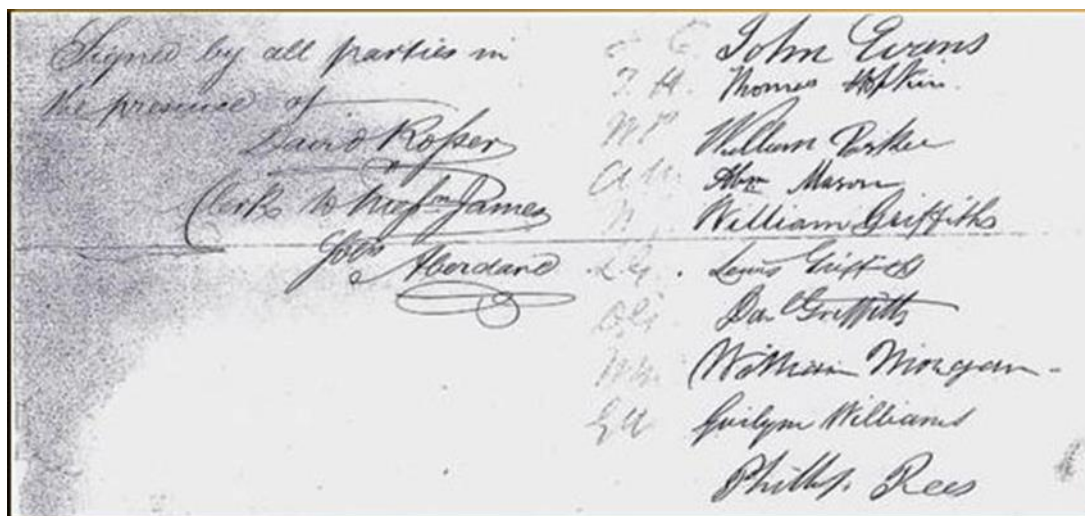 Signed by all parties in
the presence of
David Rosser
Clerk to
James
Aberdare
J E John Evans
T. H. Thomas Hopkin.
W P William Parker
A M Abm Mason
W William Griffiths
L G. Lewis Griffiths
D G Dav Griffiths
W M William Morgan -
G W Gwilym Williams
Phillip Rees